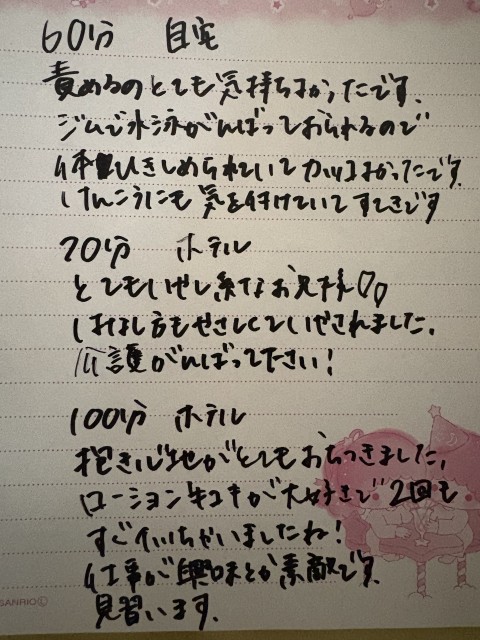 60分 自宅
責めるのとても気持ちよかったです。
ジムで水泳がんばっておられるので
体ひきしめられていてカッコよかったです。
けんこうにも気を付けていてすてきです
70分 ホテル
とてもいやし系なお兄様♡♡
はなし方もやさしくていやされました。
介護がんばって下さい!
100分 ホテル
抱き心地がとてもおちつきました。
ローションが大好きで2回も
すぐイいちゃいましたね!
仕事が興味とか素敵です。
見習います。
SANRIO